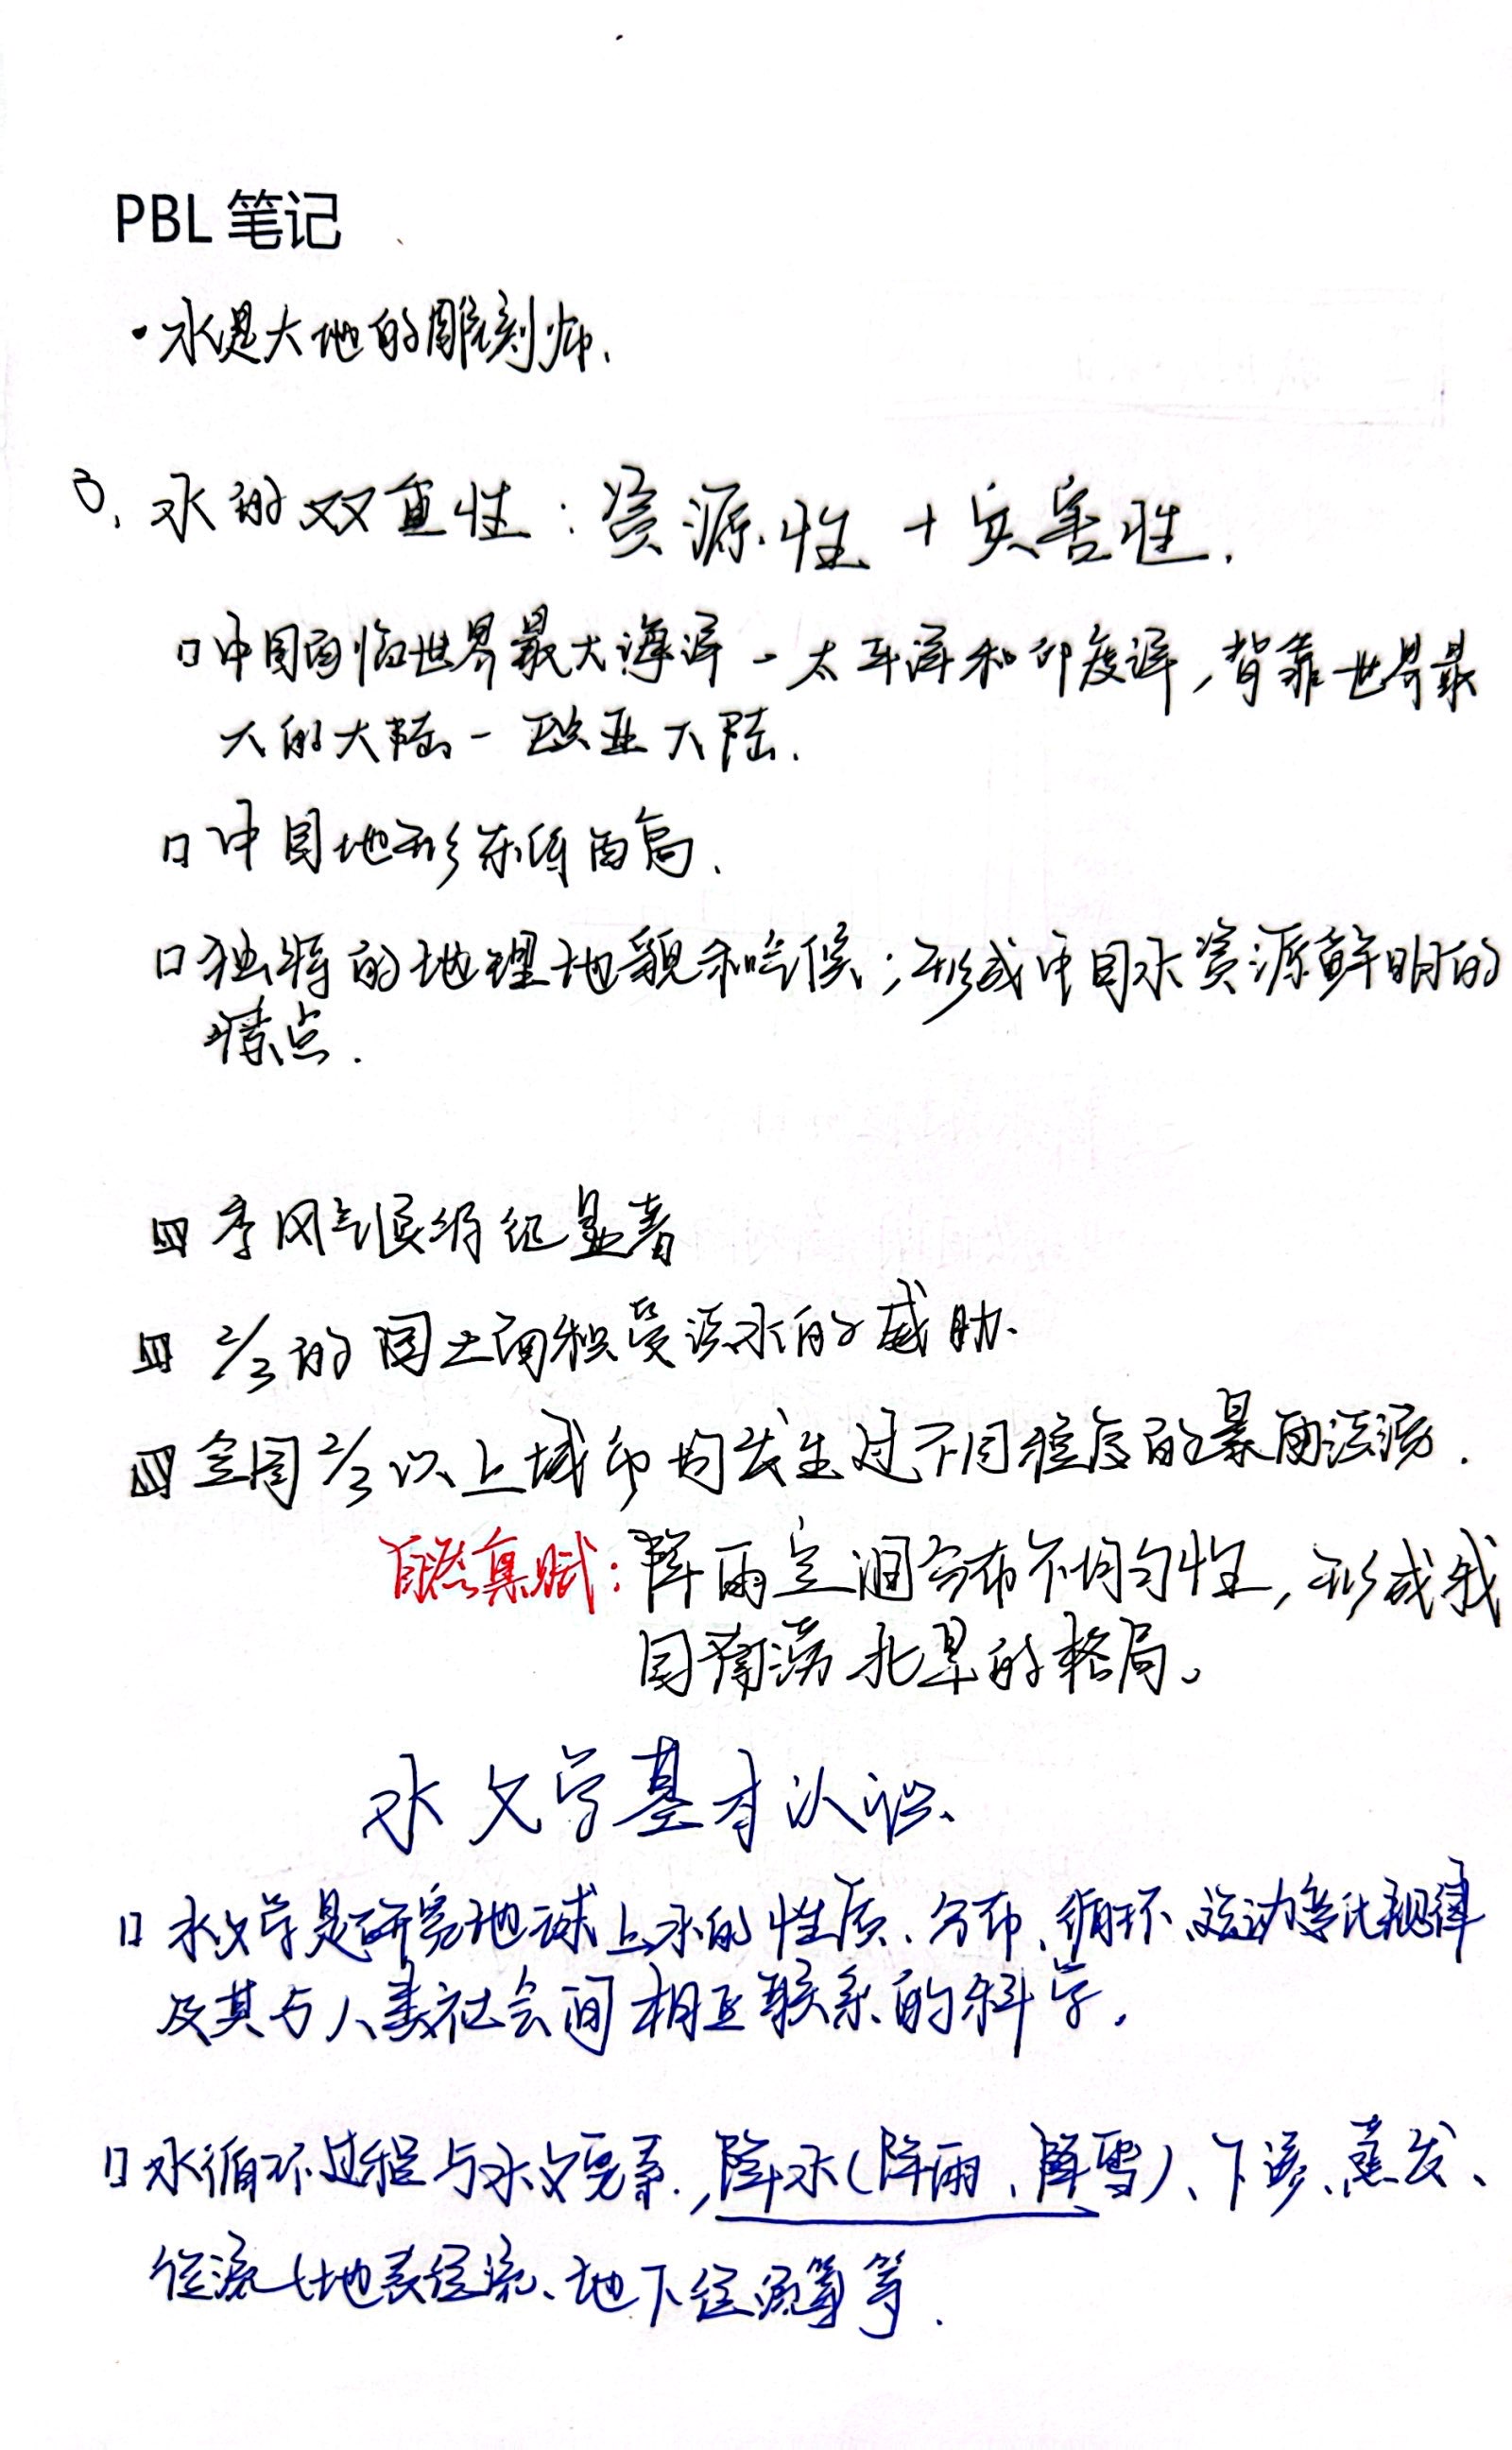 PBL 笔记
· 水是大地的雕刻师.
3. 水的双重性: 资源性 + 灾害性.
□ 中国面临世界最大海洋 - 太平洋和印度洋, 背靠世界最
大的大陆 - 欧亚大陆.
□ 中国地形东低西高.
□ 独特的地理地貌和气候; 形成中国水资源鲜明的
特点.
季风气候特征显著
2/3的国土面积受洪水的威胁.
全国2/3以上城市均发生过不同程度的暴雨洪涝.
自然禀赋: 降雨空间分布不均匀性, 形成我
国南涝北旱的格局。
水文学基本认识、
□ 水文学是研究地球上水的性质、分布、循环、运动变化规律
及其与人类社会间相互联系的科学.
□ 水循环过程与水文要素, 降水(降雨、降雪)、下渗、蒸发、
径流(地表径流、地下径流等等.